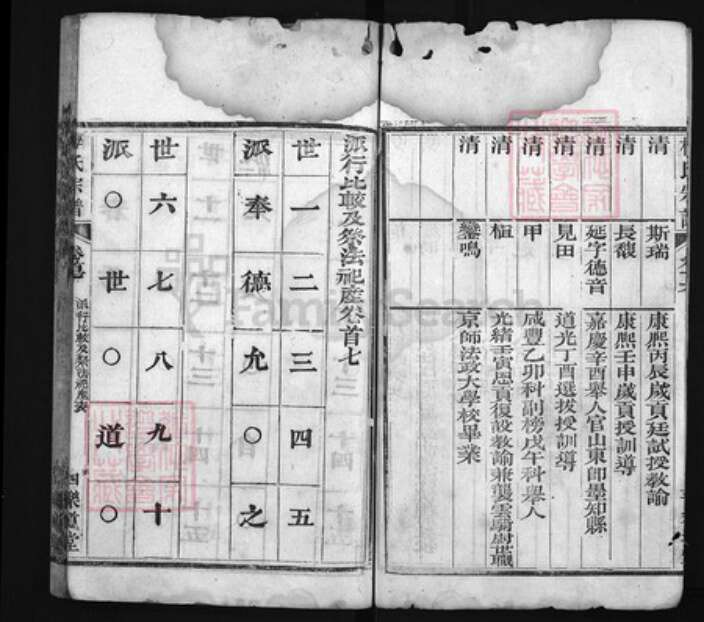 清 斯瑞 康熙丙辰歲貢廷試授教諭
清 長馥 康熙壬申歲貢授訓導
清 延字德音 嘉慶辛酉舉人官山東即墨知縣
清 見田 道光丁酉選拔授訓導
清 甲 咸豐乙卯科副榜戊午科舉人
清 植 光緒壬寅恩貢復設教諭兼襲雲騎尉世職
清 鑾鳴 京師法政大學校畢業
派行比較及祭法祀產卷首七
世 一 二 三 四 五
派 奉 德 允 〇 之
世 六 七 八 九 十
派 〇 世 〇 道 〇
氏宗譜
派行比較及祭法祀產
樂道堂
FamilySearch